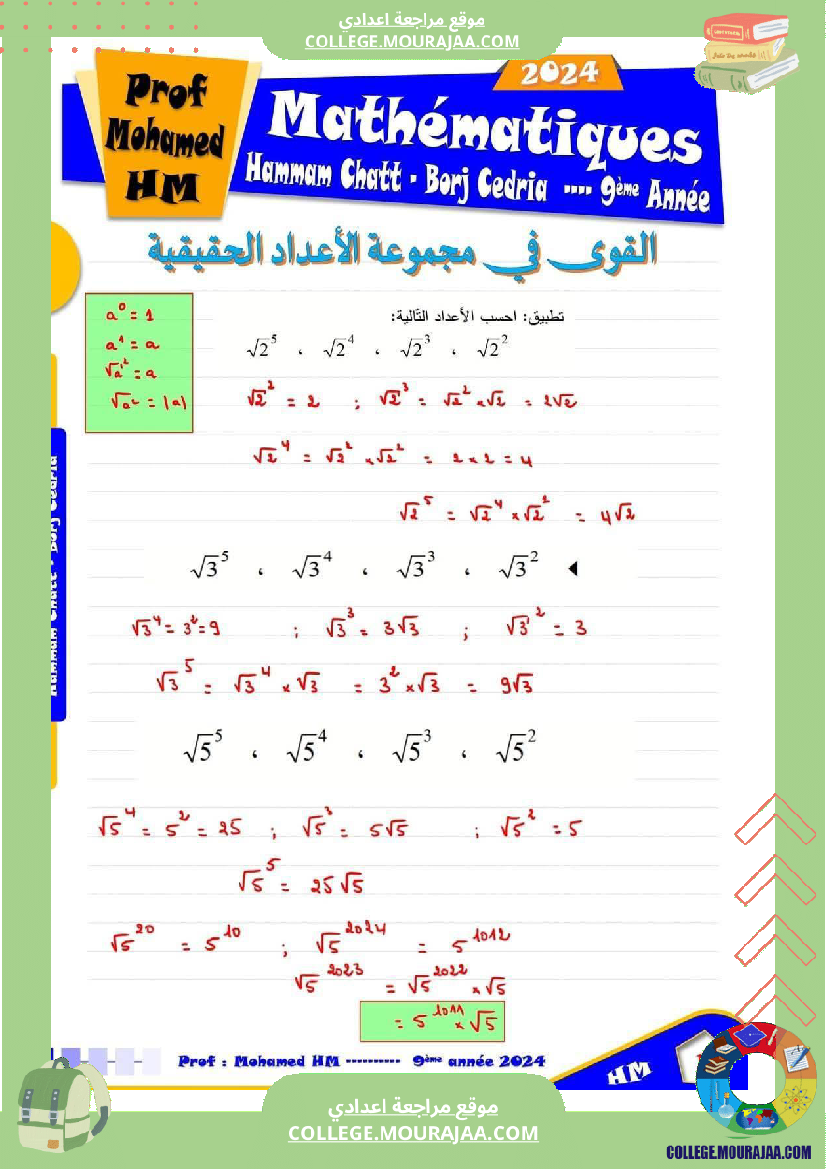 موقع مراجعة اعدادي
COLLEGE.MOURAJAA.COM
2024
Prof
Mohamed
HM
Mathématiques
Hammam Chatt - Borj Cedria ---- 9ème Année
القوى في مجموعة الأعداد الحقيقية
a⁰ = 1
a¹ = a
√a² = a
√a² = |a|
تطبيق: احسب الأعداد التّالية:
√2⁵ ، √2⁴ ، √2³ ، √2²
√2² = 2 ; √2³ = √2² × √2 = 2√2
√2⁴ = √2² × √2² = 2 × 2 = 4
√2⁵ = √2⁴ × √2² = 4√2
√3⁵ ، √3⁴ ، √3³ ، √3² ◄
√3⁴ = 3² = 9 ; √3³ = 3√3 ; √3² = 3
√3⁵ = √3⁴ × √3 = 3² × √3 = 9√3
√5⁵ ، √5⁴ ، √5³ ، √5²
√5⁴ = 5² = 25 ; √5³ = 5√5 ; √5² = 5
√5⁵ = 25√5
√5²⁰ = 5¹⁰ ; √5²⁰²⁴ = 5¹⁰¹²
√5²⁰²³ = √5²⁰²² × √5
= 5¹⁰¹¹ × √5
Hammam Chatt - Borj Cedria
Prof : Mohamed HM ---------- 9ème année 2024
HM
موقع مراجعة اعدادي
COLLEGE.MOURAJAA.COM
COLLEGE.MOURAJAA.COM